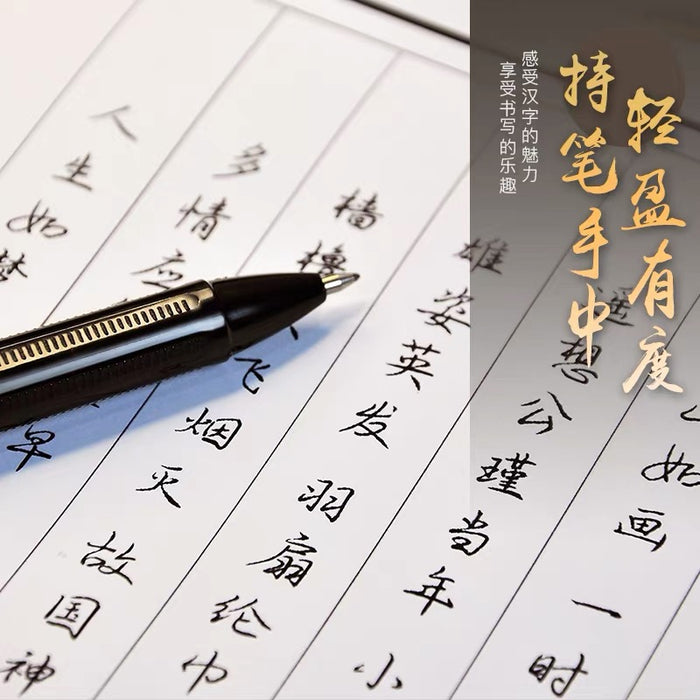 轻盈有度
持笔手中
感受汉字的魅力
享受书写的乐趣
如画一时
遥想公瑾当年小
雄姿英发羽扇纶巾
樯橹飞烟灭故国神
多情应早
人生如梦